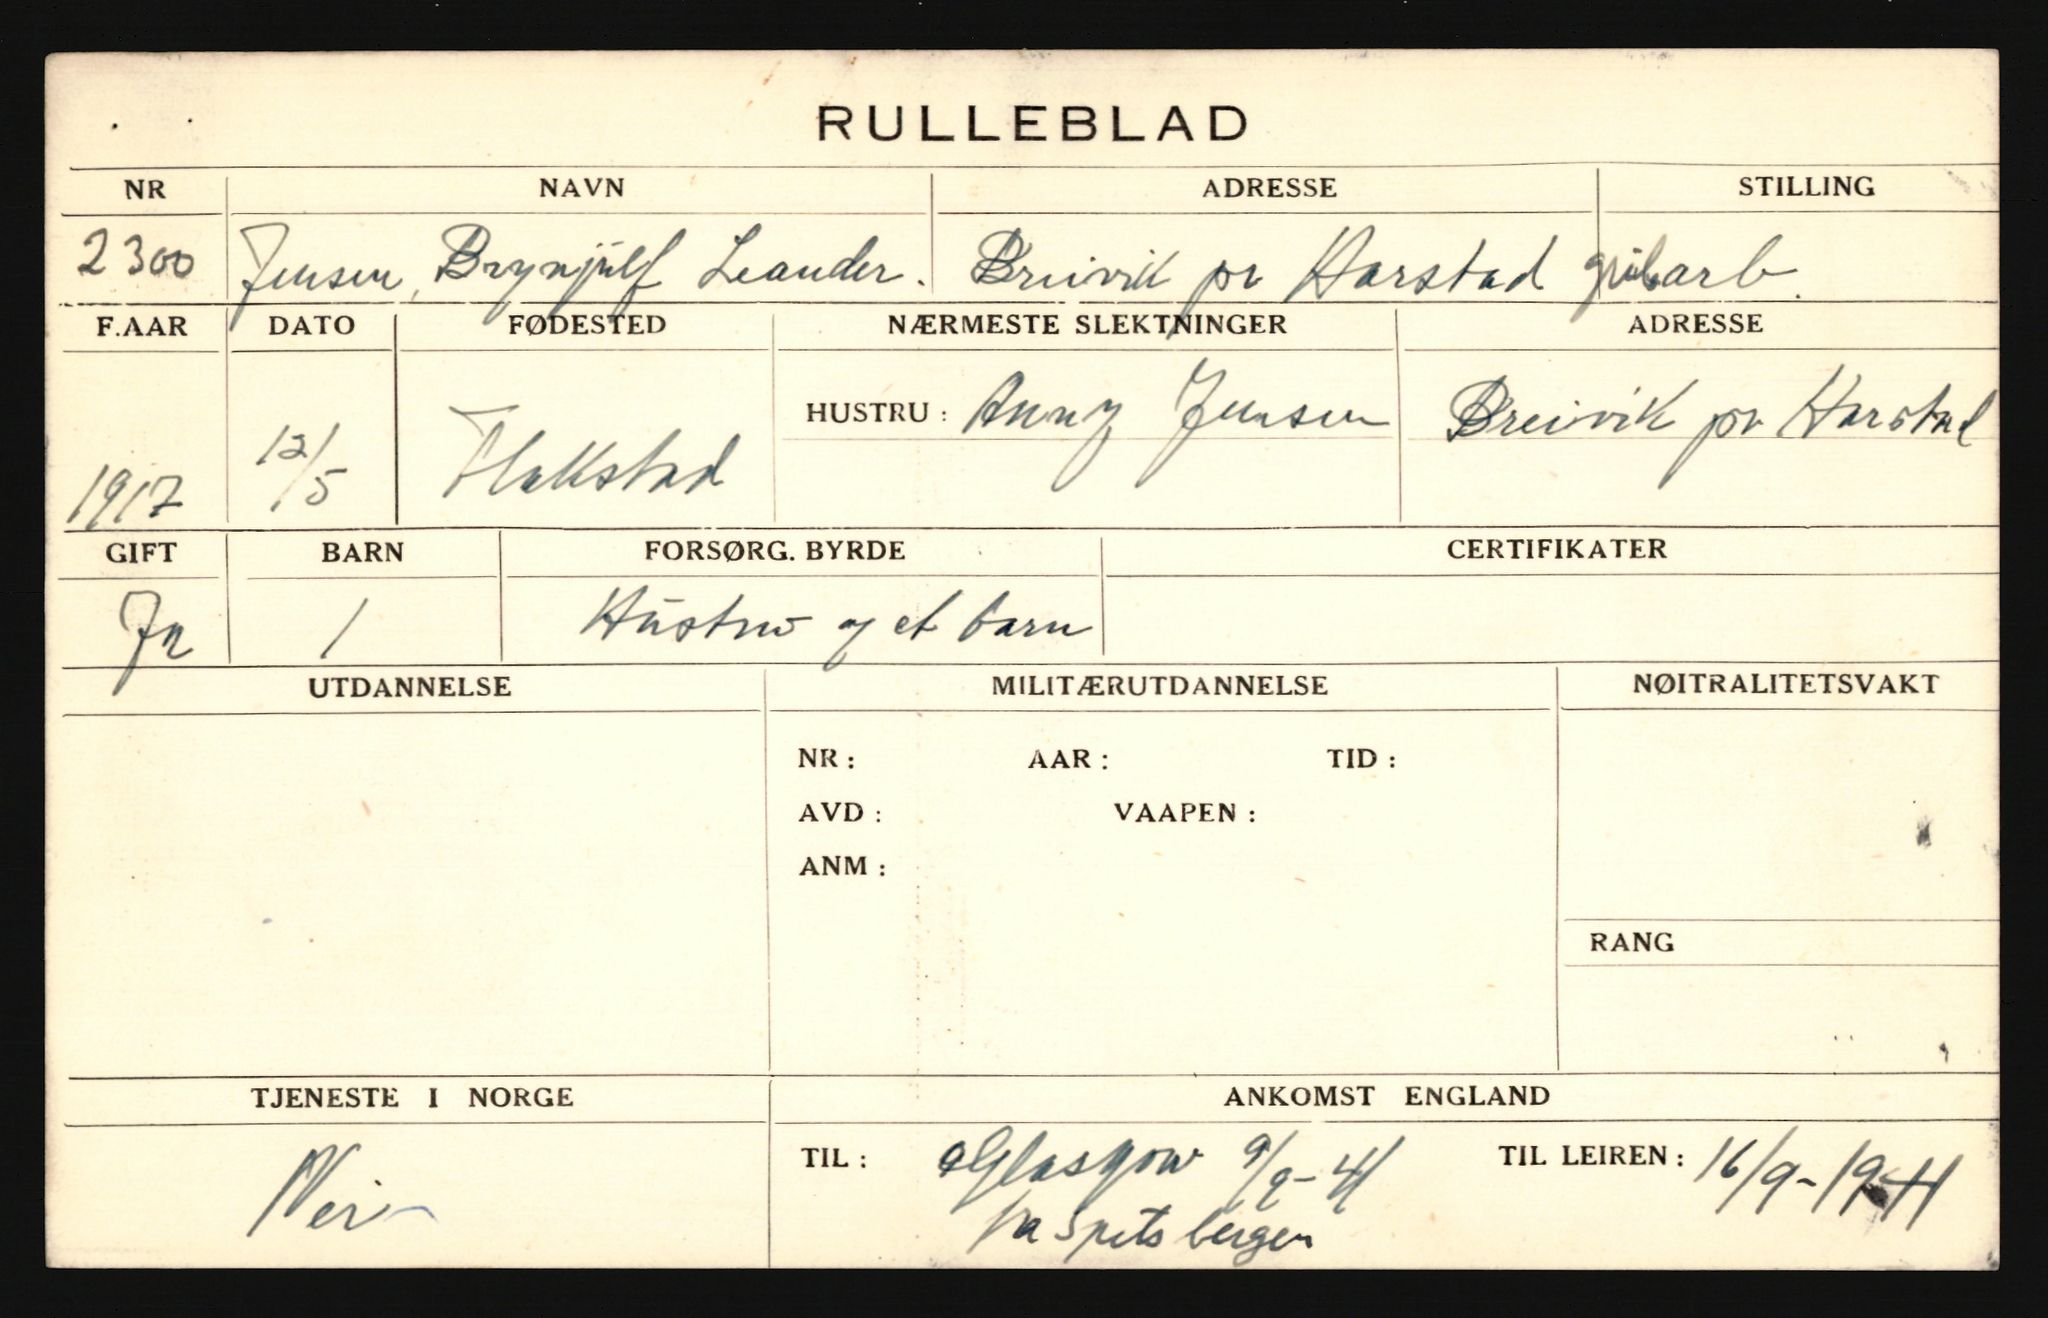 RULLEBLAD
NR NAVN ADRESSE STILLING
2300 Jensen, Brynjulf Leander. Breivik pr Harstad grubarb.
F.AAR DATO FØDESTED NÆRMESTE SLEKTNINGER ADRESSE
1917 12/5 Flakstad HUSTRU: Anny Jensen Breivik pr Harstad
GIFT BARN FORSØRG. BYRDE CERTIFIKATER
Ja 1 Hustru og et barn
UTDANNELSE MILITÆRUTDANNELSE NØITRALITETSVAKT
NR: AAR: TID:
AVD: VAAPEN:
ANM:
RANG
TJENESTE I NORGE ANKOMST ENGLAND
Nei TIL: Glasgow 9/9-41 TIL LEIREN: 16/9-1941
fra Spitsbergen